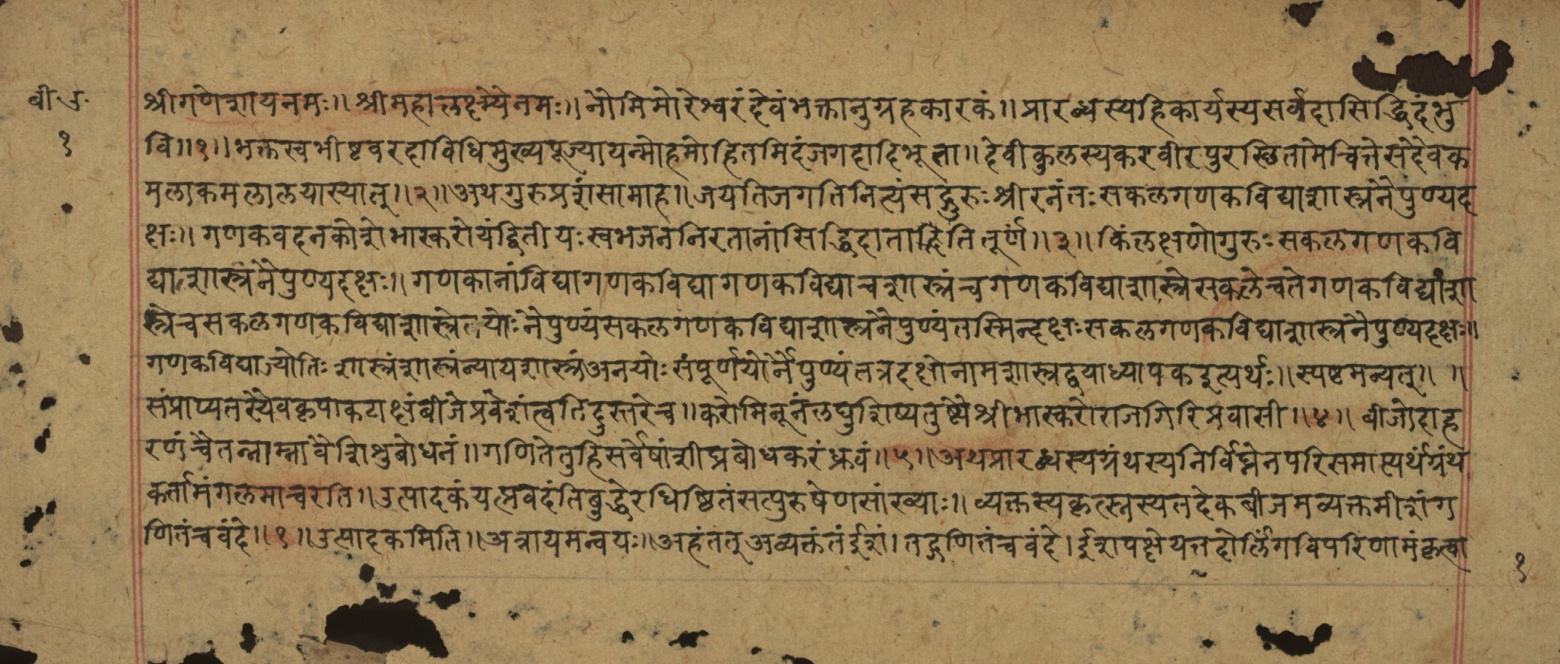 बी॰उ॰
१
श्रीगणेशायनमः॥श्रीमहालक्ष्म्यैनमः॥नौमिमोरेश्वरंदेवंभक्तानुग्रहकारकं॥प्रारब्धस्यहिकार्यस्यसर्वदासिद्धिदंभु
वि॥१॥भक्तस्वभीष्टवरदाविधिमुख्यपूज्यायन्मोहमोहितमिदंजगदादिभूता॥देवीकुलस्यकरवीरपुरस्थितामेचित्तेसदैवक
मलाकमलालयास्यात्॥२॥अथगुरुप्रशंसामाह॥जयतिजगतिनित्यंसद्गुरुःश्रीरनंतःसकलगणकविद्याशास्त्रनैपुण्यद
क्षः॥गणकवदनकोशेभास्करोयंद्वितीयःस्वभजननिरतानांसिद्धिदातातूर्णं॥३॥किंलक्षणोगुरुःसकलगणकवि
द्याशास्त्रनैपुण्यदक्षः॥गणकानांविद्यागणकविद्यागणकविद्याचशास्त्रंचगणकविद्याशास्त्रेसकलेचतेगणकविद्याशा
स्त्रेचसकलगणकविद्याशास्त्रेतयोःनैपुण्यंसकलगणकविद्याशास्त्रनैपुण्यंतस्मिन्दक्षःसकलगणकविद्याशास्त्रनैपुण्यदक्षः॥
गणकविद्याज्योतिःशास्त्रंशास्त्रंन्यायशास्त्रंअनयोःसंपूर्णयोर्नैपुण्यंतत्रदक्षोनामशास्त्रद्वयाध्यापकइत्यर्थः॥स्पष्टमन्यत्॥ ॥
संप्राप्यतस्यैवकृपाकटाक्षंबीजेप्रवेशंत्वतिदुस्तरेच॥करोमिनूनंलघुशिष्यतुष्ट्यैश्रीभास्करोराजगिरिप्रवासी॥४॥बीजोदाह
रणंचैतन्नाम्नावैशिशुबोधनं॥गणितेतुहिसर्वेषांशीघ्रबोधकरंध्रुवं॥५॥अथप्रारब्धस्यग्रंथस्यनिर्विघ्नेनपरिसमाप्त्यर्थंग्रंथ
कर्तामंगलमाचरति॥उत्पादकंयत्प्रवदंतिबुद्धेरधिष्ठितंसत्पुरुषेणसांख्याः॥व्यक्तस्यकृत्स्नस्यतदेकबीजमव्यक्तमीशंग
णितंचवंदे॥१॥उत्पादकमिति॥अत्रायमन्वयः॥अहंतत्अव्यक्तंतंईशं।तद्गणितंचवंदे।ईशपक्षेयत्तदोर्लिंगविपरिणामंकृत्वा
१